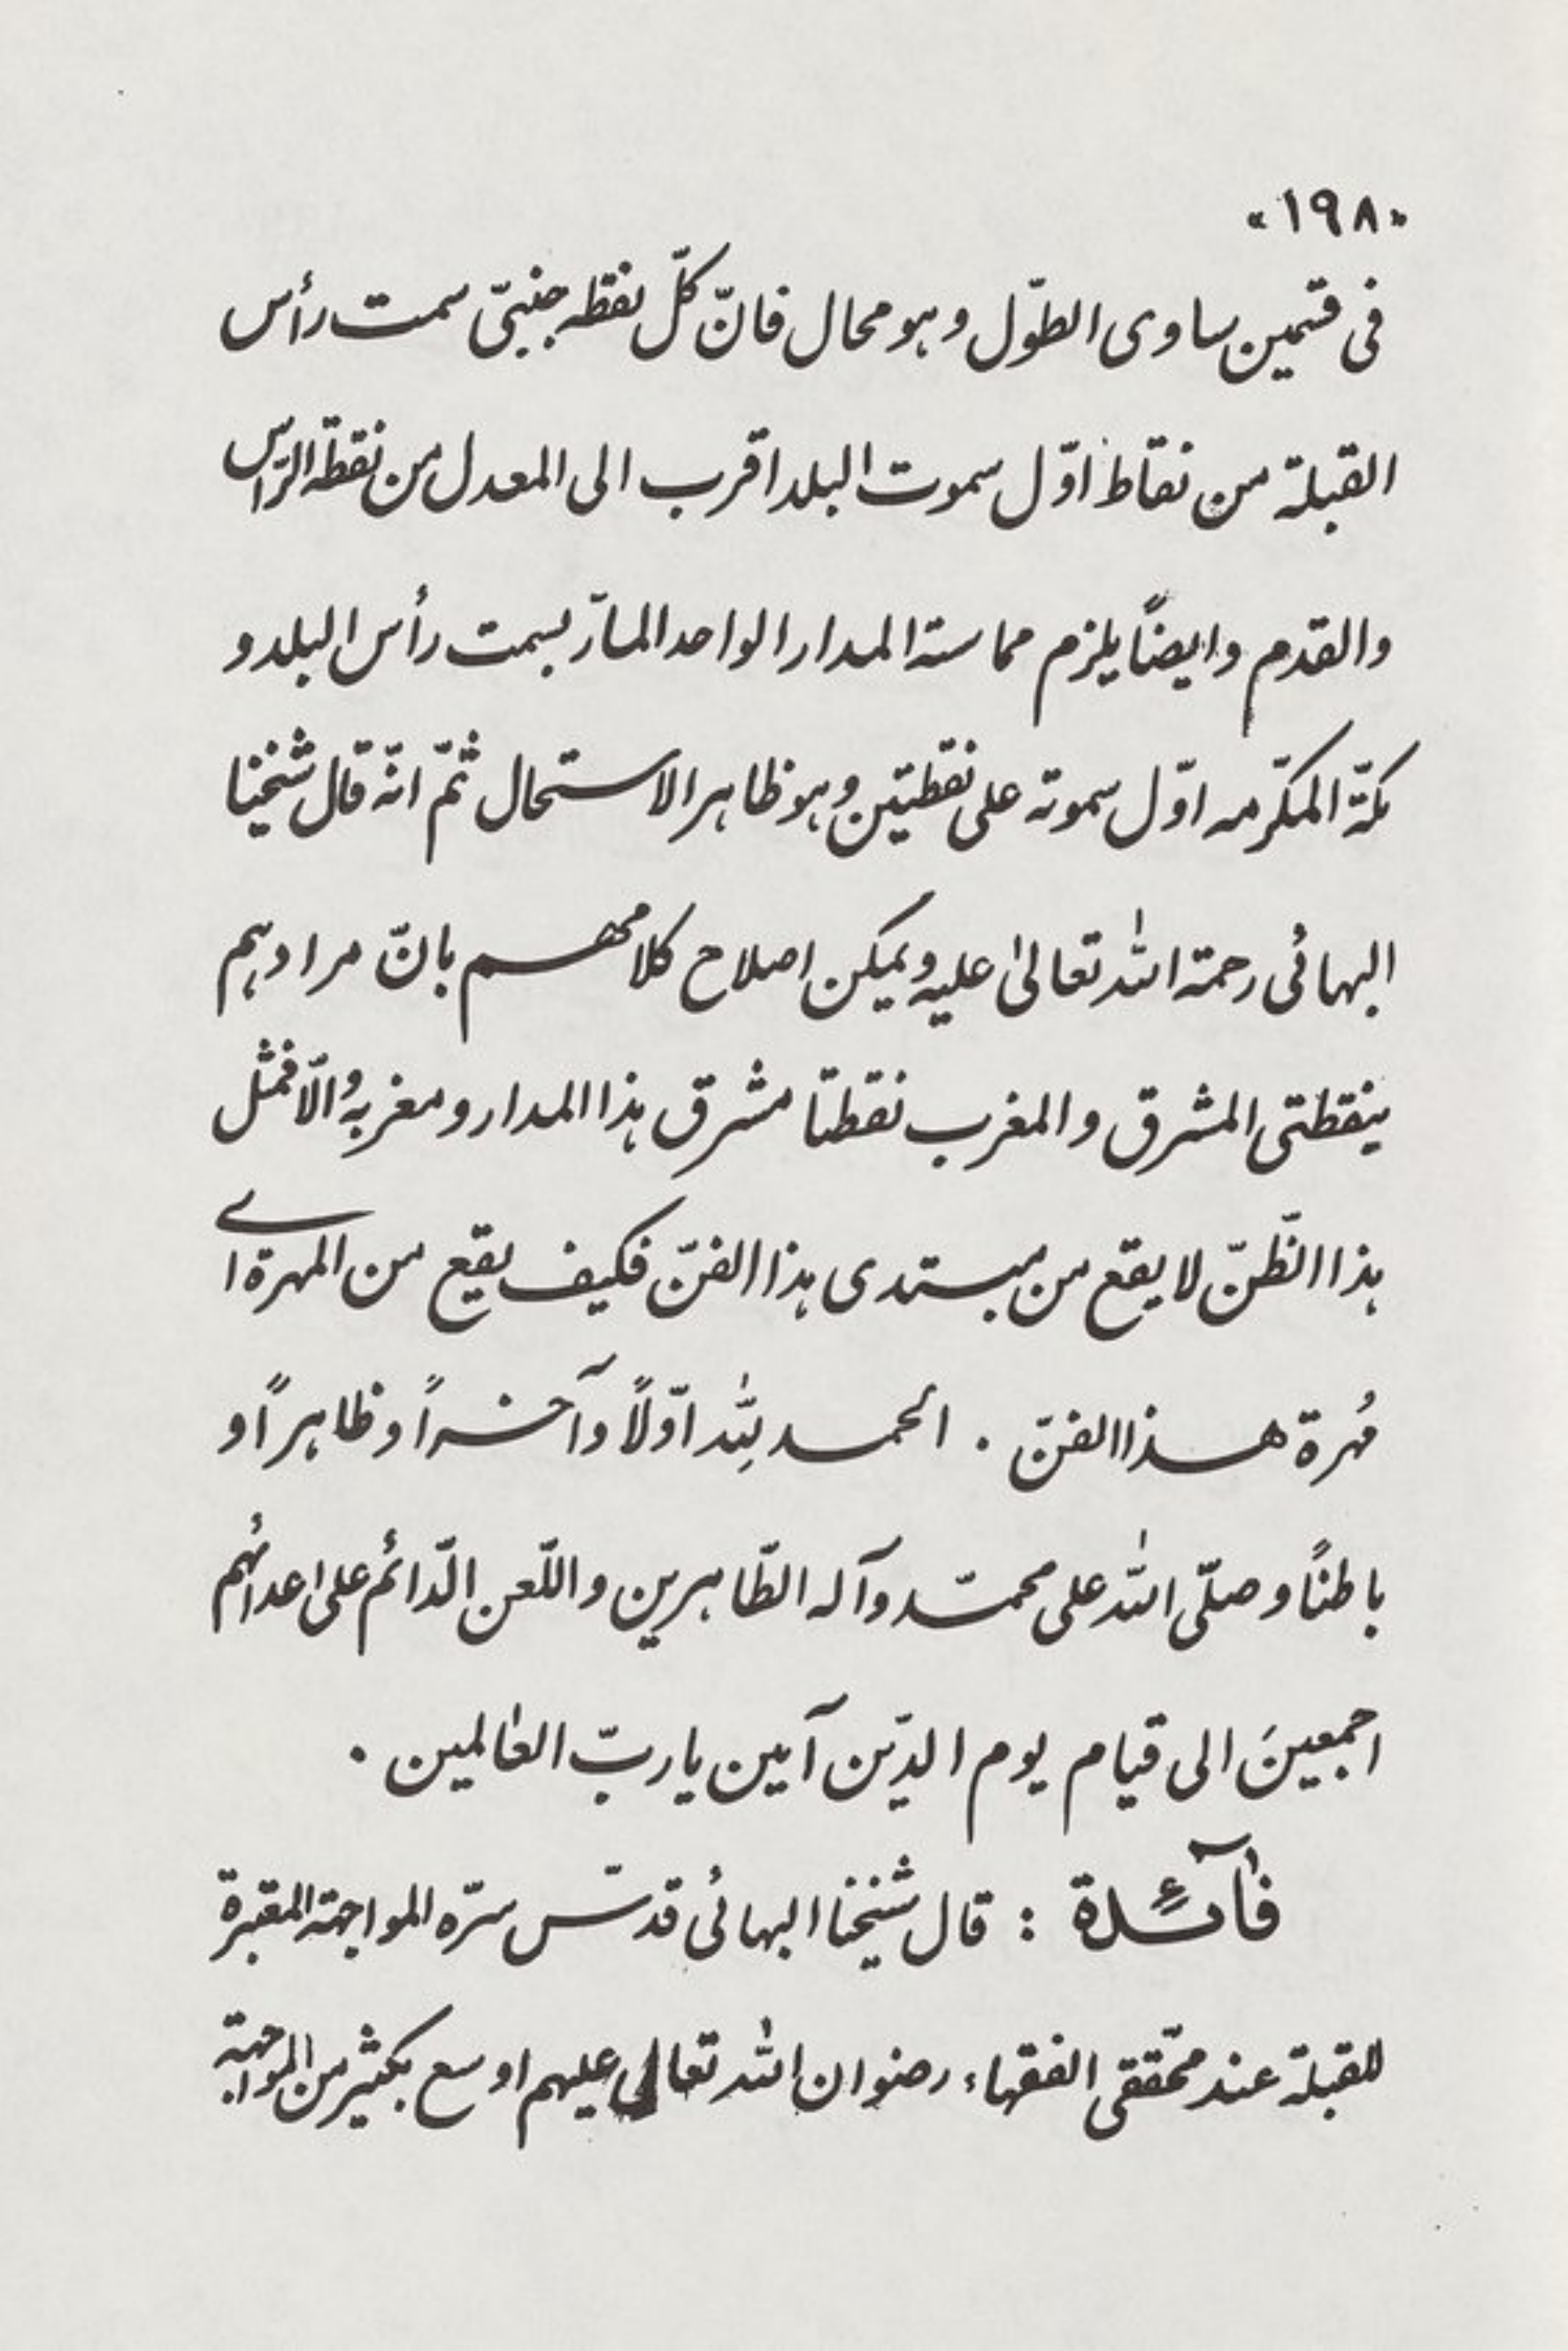 «۱۹۸»
فی قتمین ساوی الطّول وهو محال فانّ کلّ نقطه جنبتیّ سمت رأس
القبلة من نقاط اوّل سموت البلد اقرب الی المعدل من نقطة الرّاس
والقدم وایضاً یلزم مماسة المدار الواحد المارّ بسمت رأس البلد و
مکّة المکرّمه اوّل سموته علی نقطتین وهو ظاهر الاستحال ثمّ انّه قال شیخنا
البهائی رحمة الله تعالیٰ علیه ویمکن اصلاح کلامهم بانّ مرادهم
بنقطتی المشرق والمغرب نقطتا مشرق هذا المدار ومغربه والّا فمثل
هذا الظّنّ لا یقع من مبتدی هذا الفنّ فکیف یقع من المهرة ای
مُهرة هذا الفنّ . الحمد لِلّٰه اوّلاً وآخراً وظاهراً و
باطناً وصلّی الله علی محمّد وآله الطّاهرین واللّعن الدّائم علی اعدائهم
اجمعینَ الی قیام یوم الدّین آمین یا ربّ العٰالمین .
فٰآئدة : قال شیخنا البهائی قدّس سرّه المواجهة المعتبرة
للقبلة عند محقّقی الفقهاء رضوان الله تعالی علیهم اوسع بکثیر من المواجهة